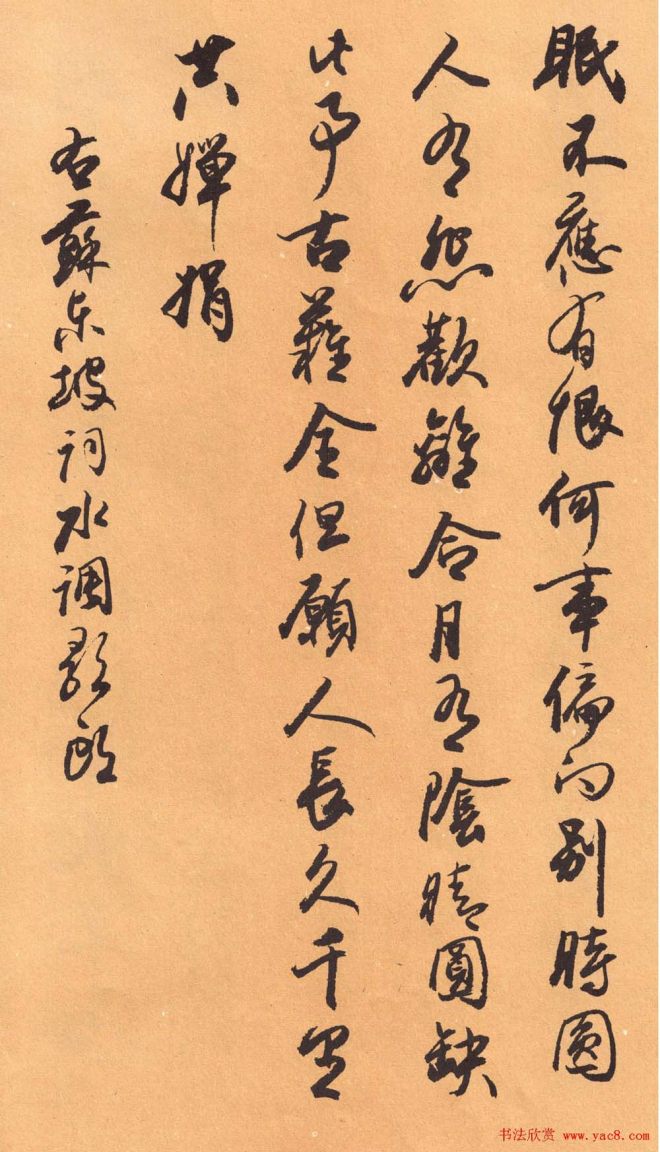 眠不應有恨何事偏向別時圓
人有悲歡離合月有陰晴圓缺
此事古難全但願人長久千里
共嬋娟
右蘇東坡詞水調歌頭
书法欣赏 www.yac8.com